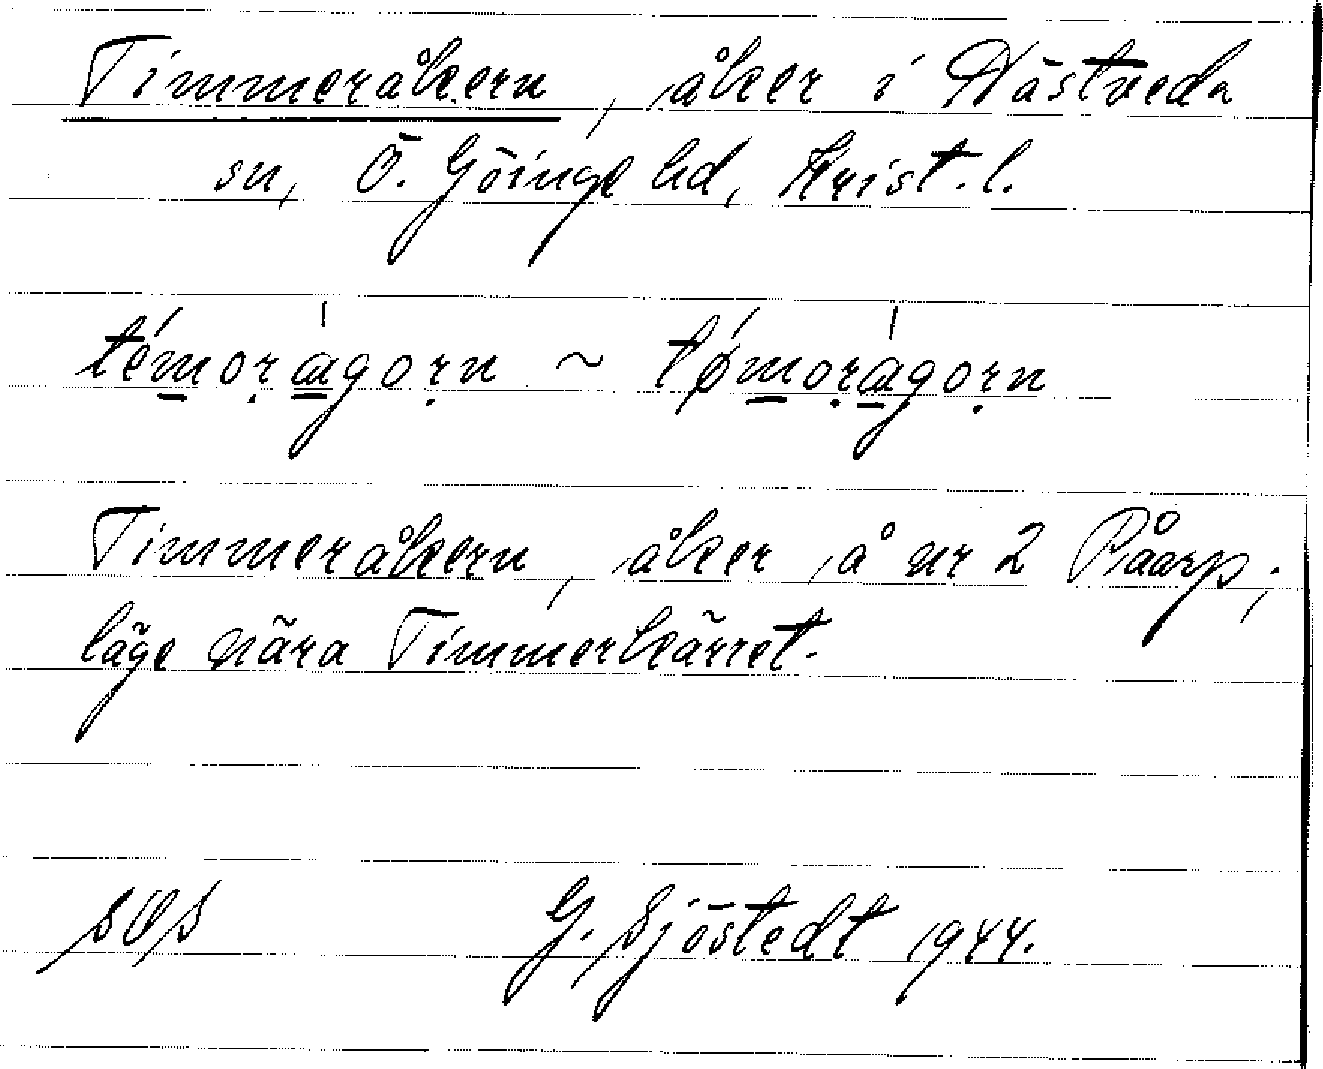 Timmeråkern, åker i Hästveda
sn, Ö. Göinge hd, Krist. l.
témoṛágoṛn ~ tǿmoṛágoṛn
Timmeråkern, åker å nr 2 Påarp;
läge nära Timmerkärret.
G. Sjöstedt 1944.